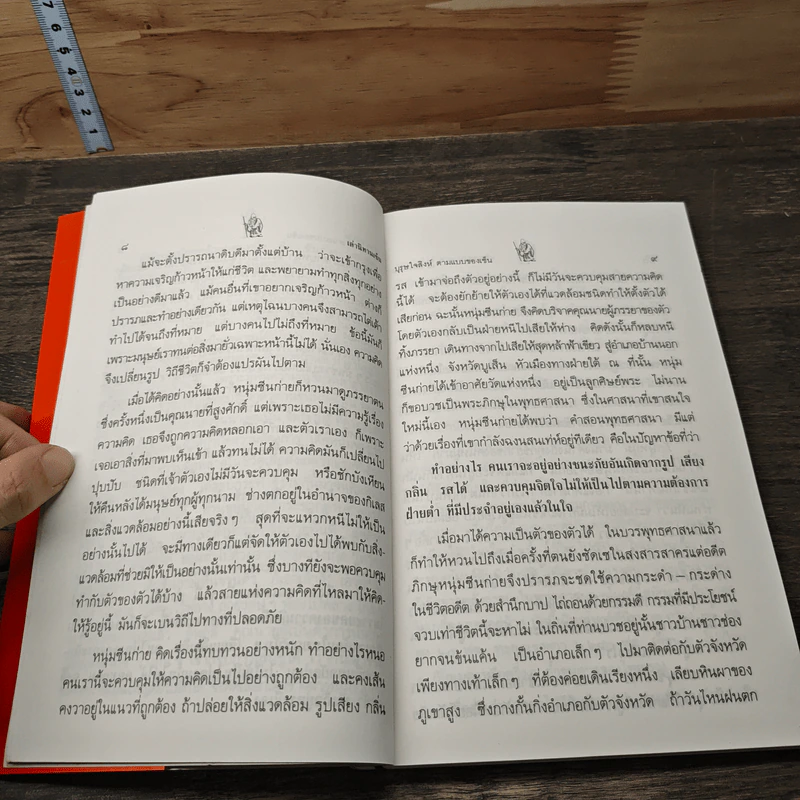 7
6
5
4
3
2
1
๘
เล่านิทานเซ็น
แม้จะตั้งปรารถนาดิบดีมาตั้งแต่บ้าน ว่าจะเข้ากรุงเพื่อ
หาความเจริญก้าวหน้าให้แก่ชีวิต และพยายามทำทุกสิ่งทุกอย่าง
เป็นอย่างดีมาแล้ว แม้คนอื่นที่เขาอยากเจริญก้าวหน้า ต่างก็
ปรารภและทำอย่างเดียวกัน แต่เหตุไฉนบางคนจึงสามารถไต่เต้า
ทำไปได้จนถึงที่หมาย แต่บางคนไปไม่ถึงที่หมาย ข้อนี้มันก็
เพราะมนุษย์เราทนต่อสิ่งมายั่วเฉพาะหน้านี้ไม่ได้ นั่นเอง ความคิด
จึงเปลี่ยนรูป วิถีชีวิตก็จำต้องแปรผันไปตาม
เมื่อได้คิดอย่างนั้นแล้ว หนุ่มซีนก่ายก็หวนมาดูภรรยาตน
ซึ่งครั้งหนึ่งเป็นคุณนายที่สูงศักดิ์ แต่เพราะเธอไม่มีความรู้เรื่อง
ความคิด เธอจึงถูกความคิดหลอกเอา และตัวเราเอง ก็เพราะ
เจอเอาสิ่งที่มาพบเห็นเข้า แล้วทนไม่ได้ ความคิดมันก็เปลี่ยนไป
ปุบปับ ชนิดที่เจ้าตัวเองไม่มีวันจะควบคุม หรือชักบังเหียน
ให้คืนหลังได้มนุษย์ทุกผู้ทุกนาม ช่างตกอยู่ในอำนาจของกิเลส
และสิ่งแวดล้อมอย่างนี้เสียจริงๆ สุดที่จะแหวกหนีไม่ให้เป็น
อย่างนั้นไปได้ จะมีทางเดียวก็แต่จัดให้ตัวเองไปได้พบกับสิ่ง-
แวดล้อมที่ช่วยมิให้เป็นอย่างนั้นเท่านั้น ซึ่งบางทียังจะพอควบคุม
ทำกับตัวของตัวได้บ้าง แล้วสายแห่งความคิดที่ไหลมาให้คิด-
ให้รู้อยู่นี้ มันก็จะเบนวิถีไปทางที่ปลอดภัย
หนุ่มซีนก่าย คิดเรื่องนี้ทบทวนอย่างหนัก ทำอย่างไรหนอ
คนเรานี้จะควบคุมให้ความคิดเป็นไปอย่างถูกต้อง และคงเส้น
คงวาอยู่ในแนวที่ถูกต้อง ถ้าปล่อยให้สิ่งแวดล้อม รูปเสียง กลิ่น
บุรุษใจสิงห์ ตามแบบของเซ็น
๙
รส เข้ามาจ่อถึงตัวอยู่อย่างนี้ ก็ไม่มีวันจะควบคุมสายความคิด
นี้ได้ จะต้องยักย้ายให้ตัวเองได้ที่แวดล้อมชนิดทำให้ตั้งตัวได้
เสียก่อน ฉะนั้นหนุ่มซีนก่าย จึงคิดบริจาคคุณนายผู้ภรรยาของตัว
โดยตัวเองกลับเป็นฝ่ายหนีไปเสียให้ห่าง คิดดังนั้นก็หลบหนี
ทิ้งภรรยา เดินทางจากไปเสียให้สุดหล้าฟ้าเขียว สู่อำเภอบ้านนอก
แห่งหนึ่ง จังหวัดบูเส็น หัวเมืองทางฝ่ายใต้ ณ ที่นั้น หนุ่ม
ซีนก่ายได้เข้าอาศัยวัดแห่งหนึ่ง อยู่เป็นลูกศิษย์พระ ไม่นาน
ก็ขอบวชเป็นพระภิกษุในพุทธศาสนา ซึ่งในศาสนาที่เขาสนใจ
ใหม่นี้เอง หนุ่มซีนก่ายได้พบว่า คำสอนพุทธศาสนา มีแต่
ว่าด้วยเรื่องที่เขากำลังฉงนสนเท่ห์อยู่ทีเดียว คือในปัญหาข้อที่ว่า
ทำอย่างไร คนเราจะอยู่อย่างชนะภัยอันเกิดจากรูป เสียง
กลิ่น รสได้ และควบคุมจิตใจไม่ให้เป็นไปตามความต้องการ
ฝ่ายต่ำ ที่มีประจำอยู่เองแล้วในใจ
เมื่อมาได้ความเป็นตัวของตัวได้ ในบวรพุทธศาสนาแล้ว
ก็ทำให้หวนไปถึงเมื่อครั้งที่ตนยังซัดเซในสงสารสาครแต่อดีต
ภิกษุหนุ่มซีนก่ายจึงปรารภจะชดใช้ความกระดำ – กระด่าง
ในชีวิตอดีต ด้วยสำนึกบาป ไถ่ถอนด้วยกรรมดี กรรมที่มีประโยชน์
จวบเท่าชีวิตนี้จะหาไม่ ในถิ่นที่ท่านบวชอยู่นั้นชาวบ้านชาวช่อง
ยากจนข้นแค้น เป็นอำเภอเล็กๆ ไปมาติดต่อกับตัวจังหวัด
เพียงทางเท้าเล็กๆ ที่ต้องค่อยเดินเรียงหนึ่ง เลียบหินผาของ
ภูเขาสูง ซึ่งกางกั้นกิ่งอำเภอกับตัวจังหวัด ถ้าวันไหนฝนตก